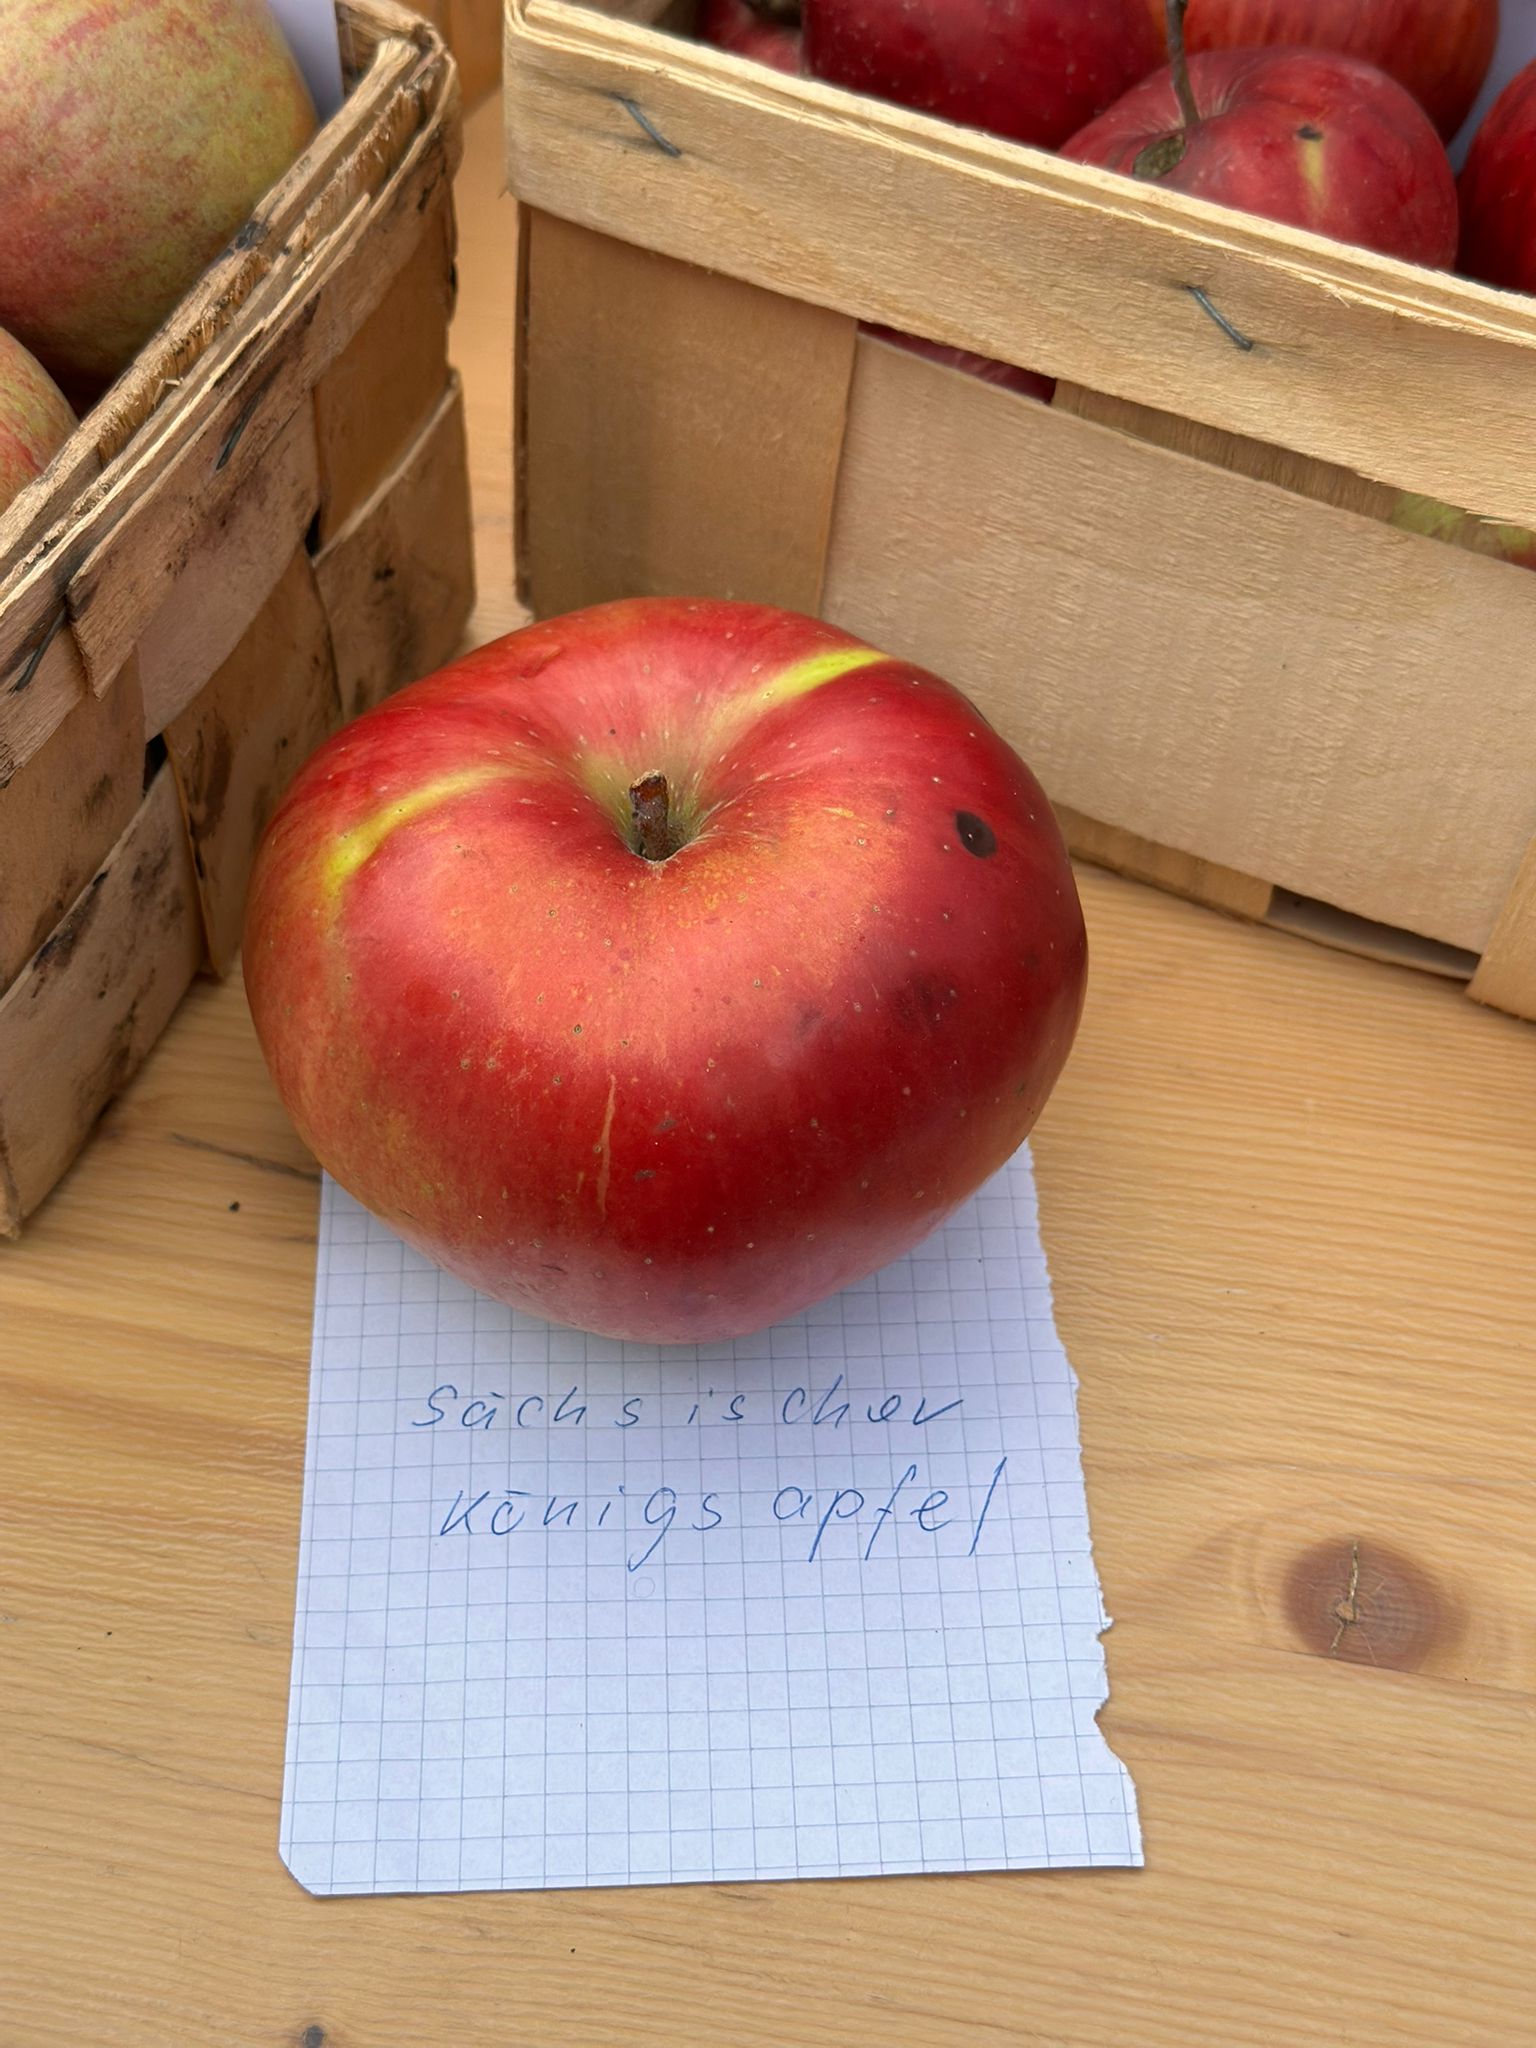 Sächsischer
Königsapfel